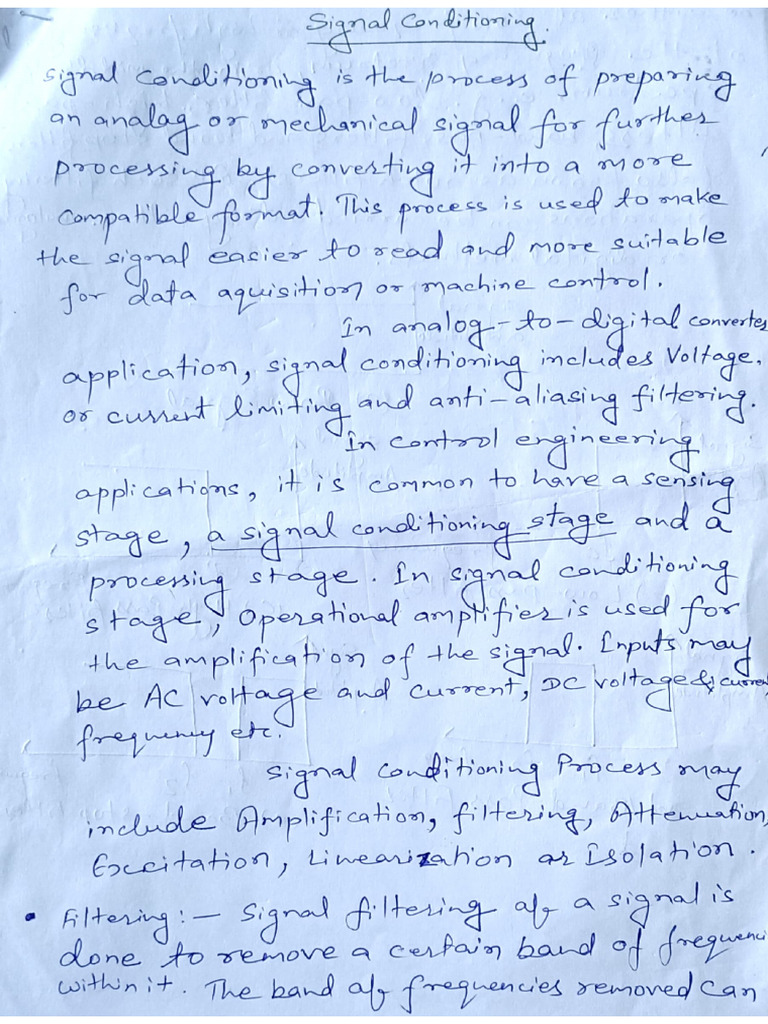 Signal Conditioning.
Signal conditioning is the process of preparing
an analag or mechanical signal for further
processing by converting it into a more
compatible format. This process is used to make
the signal easier to read and more suitable
for data aquisition or machine control.
In analog-to-digital converter
application, signal conditioning includes Voltage.
or current limiting and anti-aliasing filtering.
In control engineering
applications, it is common to have a sensing
stage, a signal conditioning stage and a
processing stage. In signal conditioning
stage, Operational amplifier is used for
the amplification of the signal. Inputs may
be AC voltage and current, DC voltage & current
frequency etc.
Signal Conditioning Process may
include Amplification, filtering, Attenuation,
Excitation, Linearization or Isolation.
• Filtering:— Signal filtering of a signal is
done to remove a certain band of frequenci
within it. The band of frequencies removed can